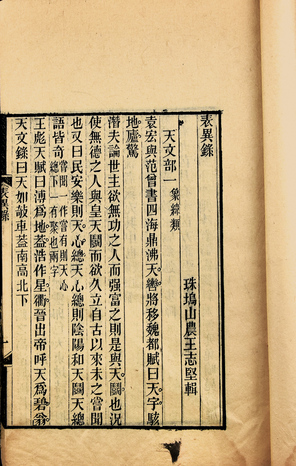 表異錄
珠塢山農王志堅輯
天文部一 象緯類
袁宏與范曾書四海鼎沸天轡將移魏都賦曰天宇駭
地廬驚
潛夫論世主欲無功之人而强富之則是與天鬭也況
使無德之人與皇天鬭而欲久立自古以來未之嘗聞
也又曰民安樂則天心總天心總則陰陽和天鬭天總
語皆奇 嘗聞一作嘗有則天心
總下一有聚也兩字
王彪天賦曰溥爲地蓋浩作星衢晉出帝呼天爲碧翁
天文錄曰天如敧車蓋南高北下
表異錄